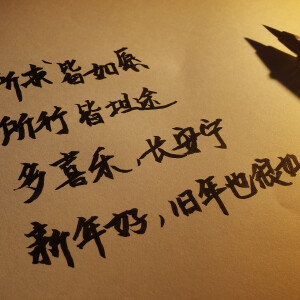 所求皆如愿
所行皆坦途
多喜乐，长安宁
新年好，旧年也很